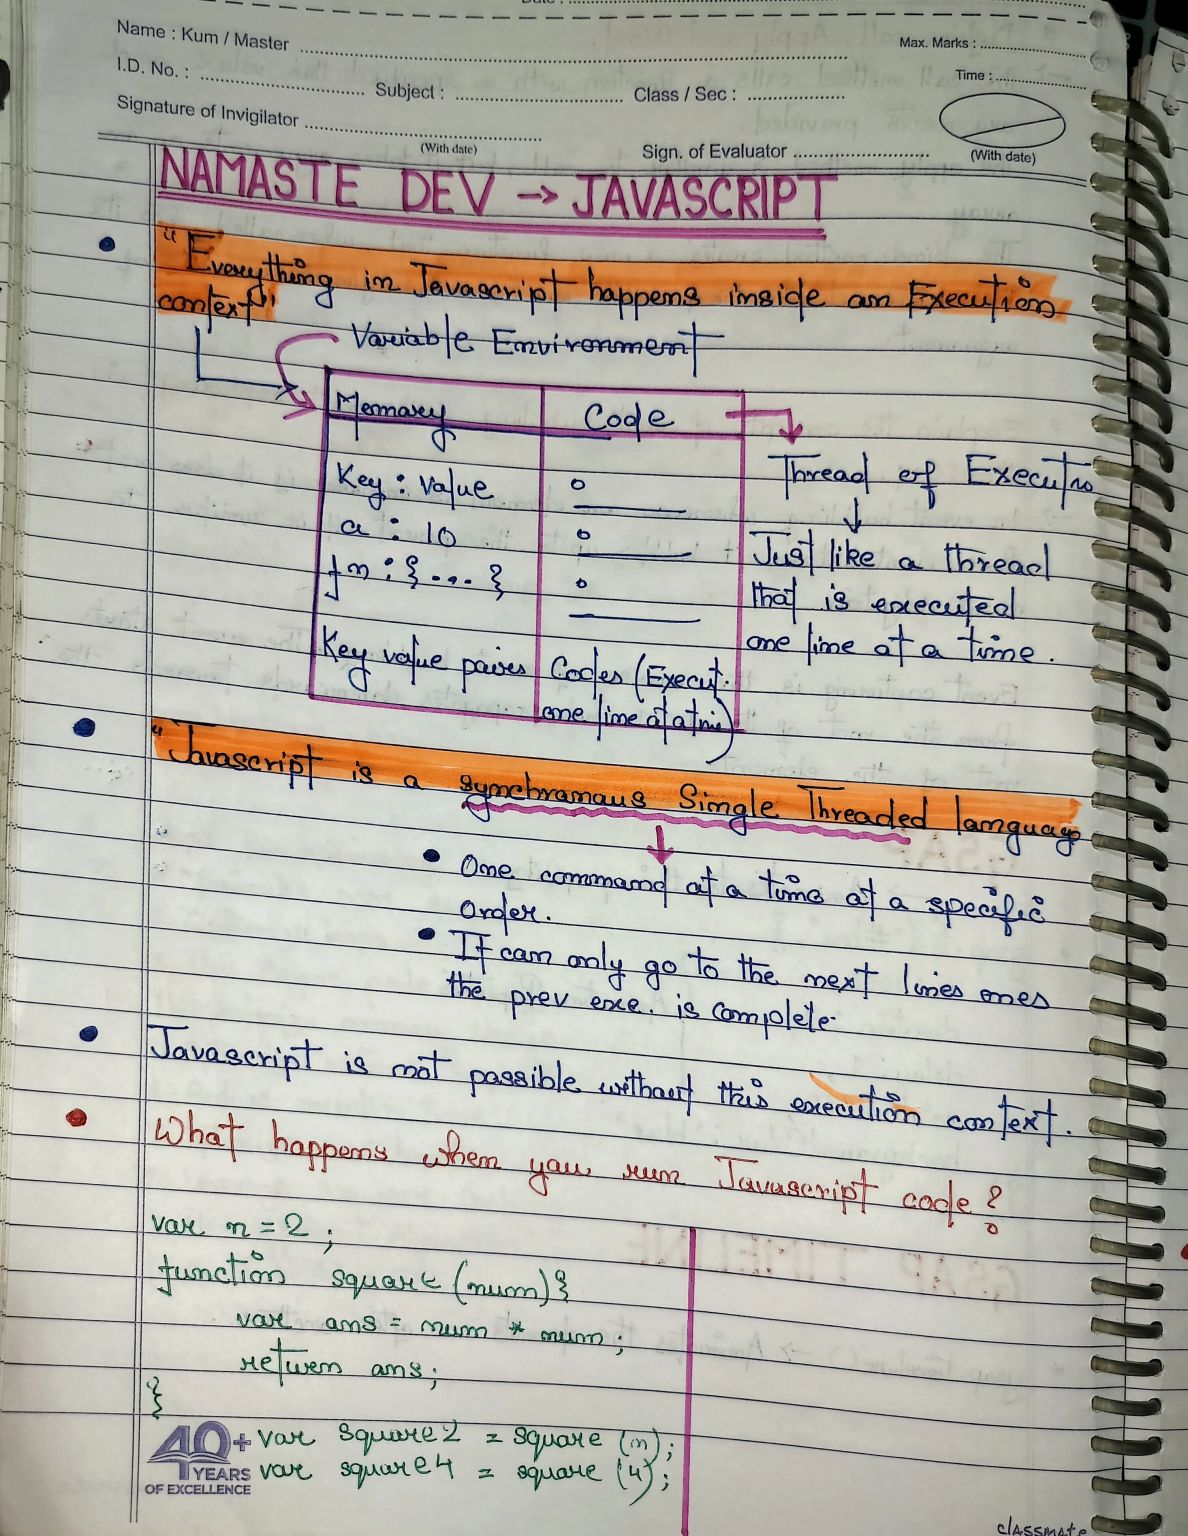 Name : Kum / Master
Max. Marks :
I.D. No. :
Subject :
Class / Sec :
Time :
Signature of Invigilator
(With date)
Sign. of Evaluator
(With date)
NAMASTE DEV → JAVASCRIPT
"Everything in Javascript happens inside an Execution
context"
Variable Environment
Memory
Code
Key : value
a : 10
fn : {...}
Key value pairs
Codes (Execut.
one line at a time)
Thread of Executio
Just like a thread
that is executed
one line at a time.
"Javascript is a synchronous Single Threaded language
One command at a time at a specific
order.
It can only go to the next lines ones
the prev exe. is complete.
Javascript is not possible without this execution context.
What happens when you run Javascript code?
var n = 2 ;
function square (num) {
var ans = num * num ;
return ans ;
}
var square2 = square (n);
var square4 = square (4);
40+
YEARS
OF EXCELLENCE
classmate